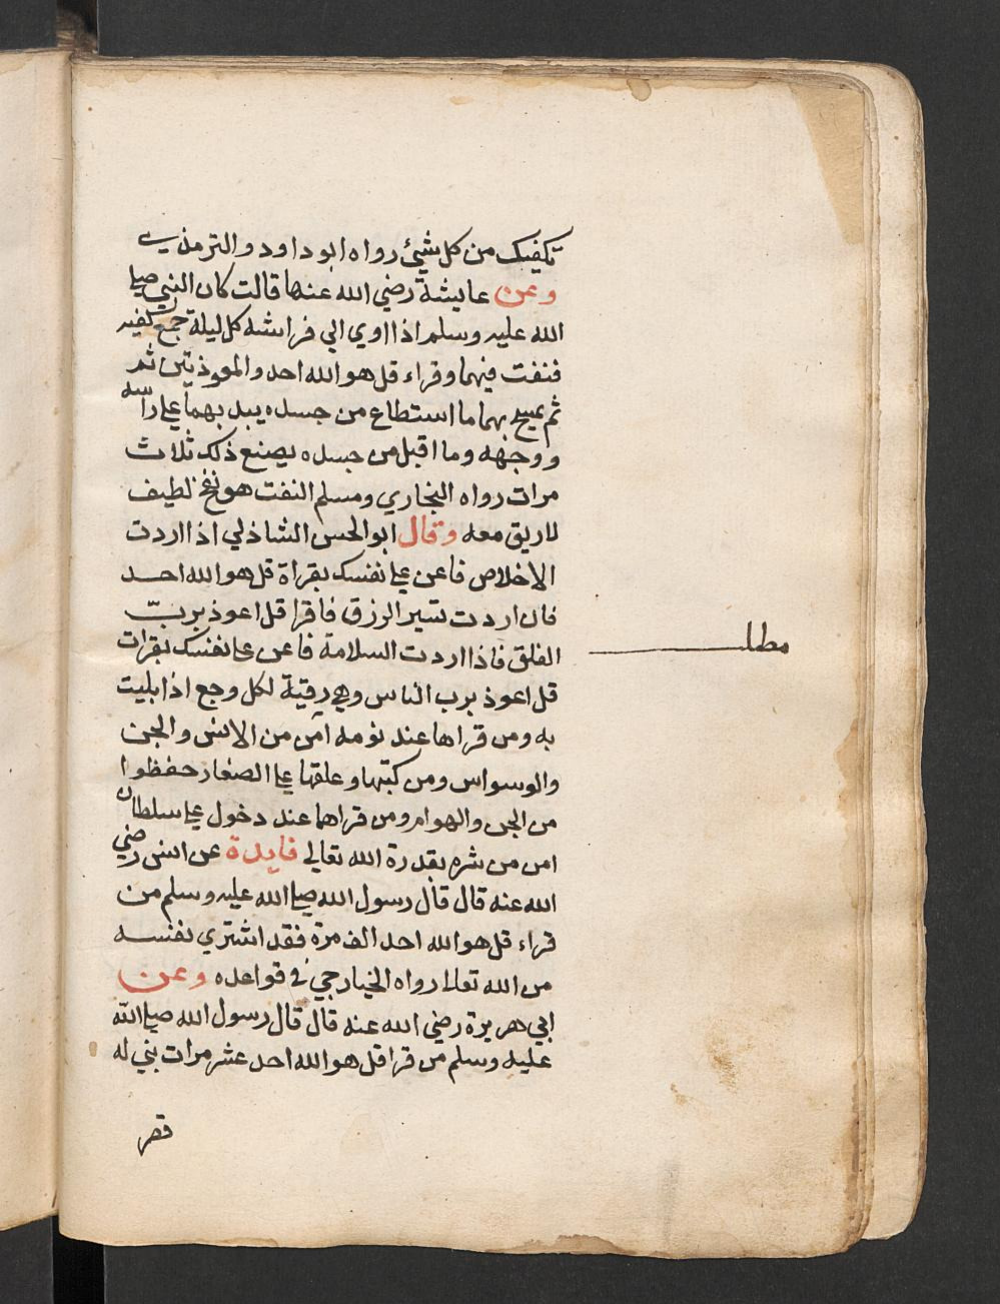 تكفيك من كل شيئ رواه ابو داود والترمذي
وعن عايشة رضي الله عنها قالت كان النبي صلي
الله عليه وسلم اذا اوي الي فراشه كل ليلة جمع كفيه
فنفت فيهما وقراء قل هو الله احد والمعوذتين ثم
ثم يمسح بهما ما استطاع من جسده يبد بهما علي راسه
ووجهه وما اقبل من جسده يصنع ذلك ثلاث
مرات رواه البخاري ومسلم النفت هو نفخ لطيف
لا ريق معه وقال ابو الحسن الشاذلي اذا اردت
الاخلاص فاعن علي نفسك بقراة قل هو الله احد
فان اردت تسير الرزق فاقرا قل اعوذ برب
الفلق فاذا اردت السلامة فاعن علي نفسك بقرات
مطلب
قل اعوذ برب الناس وهي رقية لكل وجع اذا بليت
به ومن قراها عند نومه امن من الانس والجن
والوسواس ومن كتبها وعلقها علي الصغار حفظوا
من الجن والهوام ومن قراهما عند دخول علي سلطان
امن من شره بقدرة الله تعالي فايدة عن انس رضي
الله عنه قال قال رسول الله صلي الله عليه وسلم من
قراء قل هو الله احد الف مرة فقد اشتري نفسه
من الله تعالا رواه الخيارجي في قواعده وعن
ابي هريرة رضي الله عنه قال قال رسول الله صلي الله
عليه وسلم من قرا قل هو الله احد عشر مرات بني له
قصر